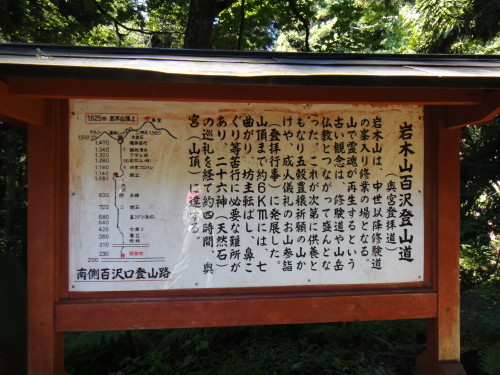 岩木山百沢登山道
(奥宮登拝道)
岩木山は、中世以降修験道
の峯入り修業の場となる。
山で霊魂が再生するという
古い観念は、修験道や山岳
仏教とつながって盛んとな
った。これが次第に供養と
もなり五穀豊穣祈願の山か
けや、成人儀礼のお山参詣
(登拝行事)に発展した。
山頂まで約6Kmには、七
曲がり、坊主転ばし、鼻こ
ぐり等苦行に必要な難所が
あり、二十六神(天然石)
の巡礼を経て約四時間、奥
宮(山頂)に達する。
1,625m 岩木山頂上
1,560
1,510
1,470
1,340
1,270
1,160
1,080
830
680
640
310
290
200
南側百沢口登山路